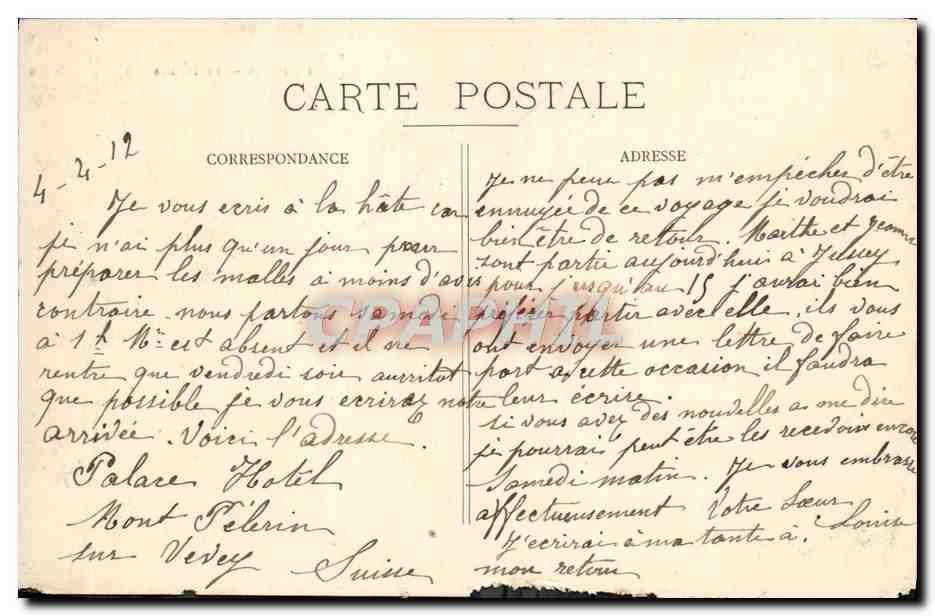 CARTE POSTALE
CORRESPONDANCE
4-4-12
Je vous ecris à la hâte car
je n'ai plus qu'un jour pour
préparer les malles a moins d'avis
contraire. nous partons samedi
à 1h Mr est absent et il ne
rentre que vendredi soir aussitot
que possible je vous ecrirez notre
arrivée. Voici l'adresse.
Palace Hotel
Mont Pélerin
sur Vevey
Suisse
ADRESSE
Je ne peux pas m'empécher d'être
ennuyée de ce voyage je voudrai
bien être de retour. Marthe et Jeanne
sont partie aujourd'hui à
pour jusqu'au 15 j'aurai bien
préférer partir avec elle. ils vous
ont envoyer une lettre de faire
part a cette occasion il faudra
leur écrire.
si vous avez des nouvelles a me dire
je pourrai peut être les recevoir encore
Samedi matin. Je vous embrasse
affectueusement Votre Sœur
Louise
J'ecrirai à ma tante à
mon retour
CPAPHIL